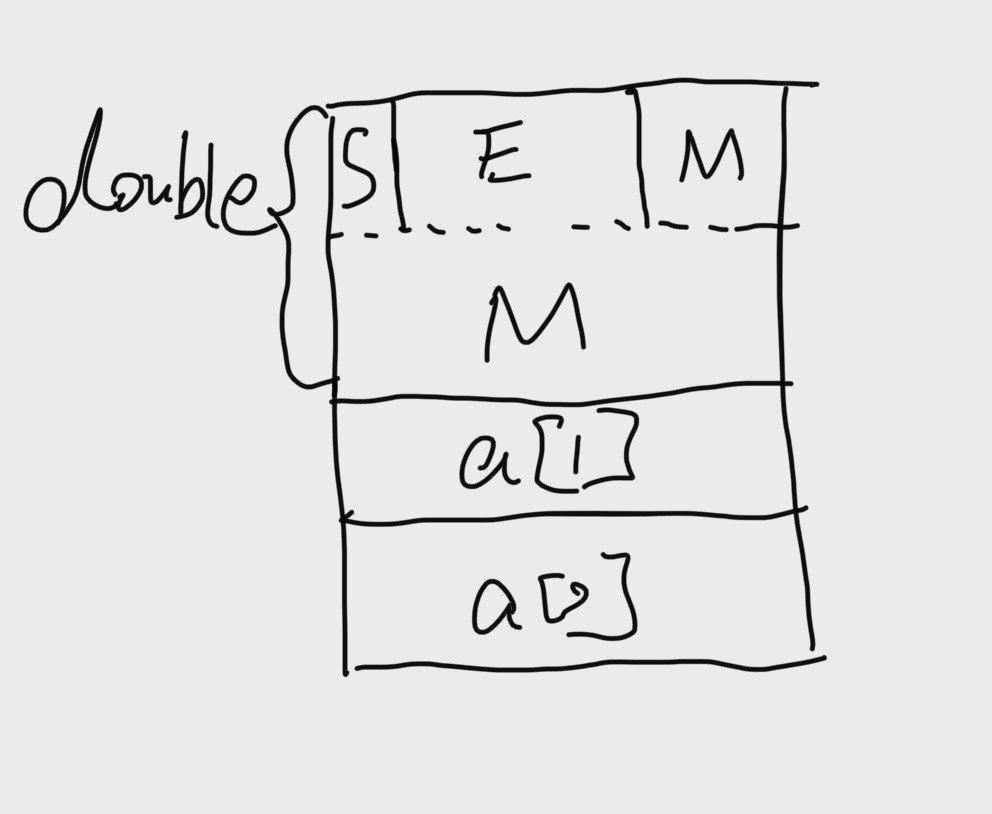 double
S E M
M
a[1]
a[0]